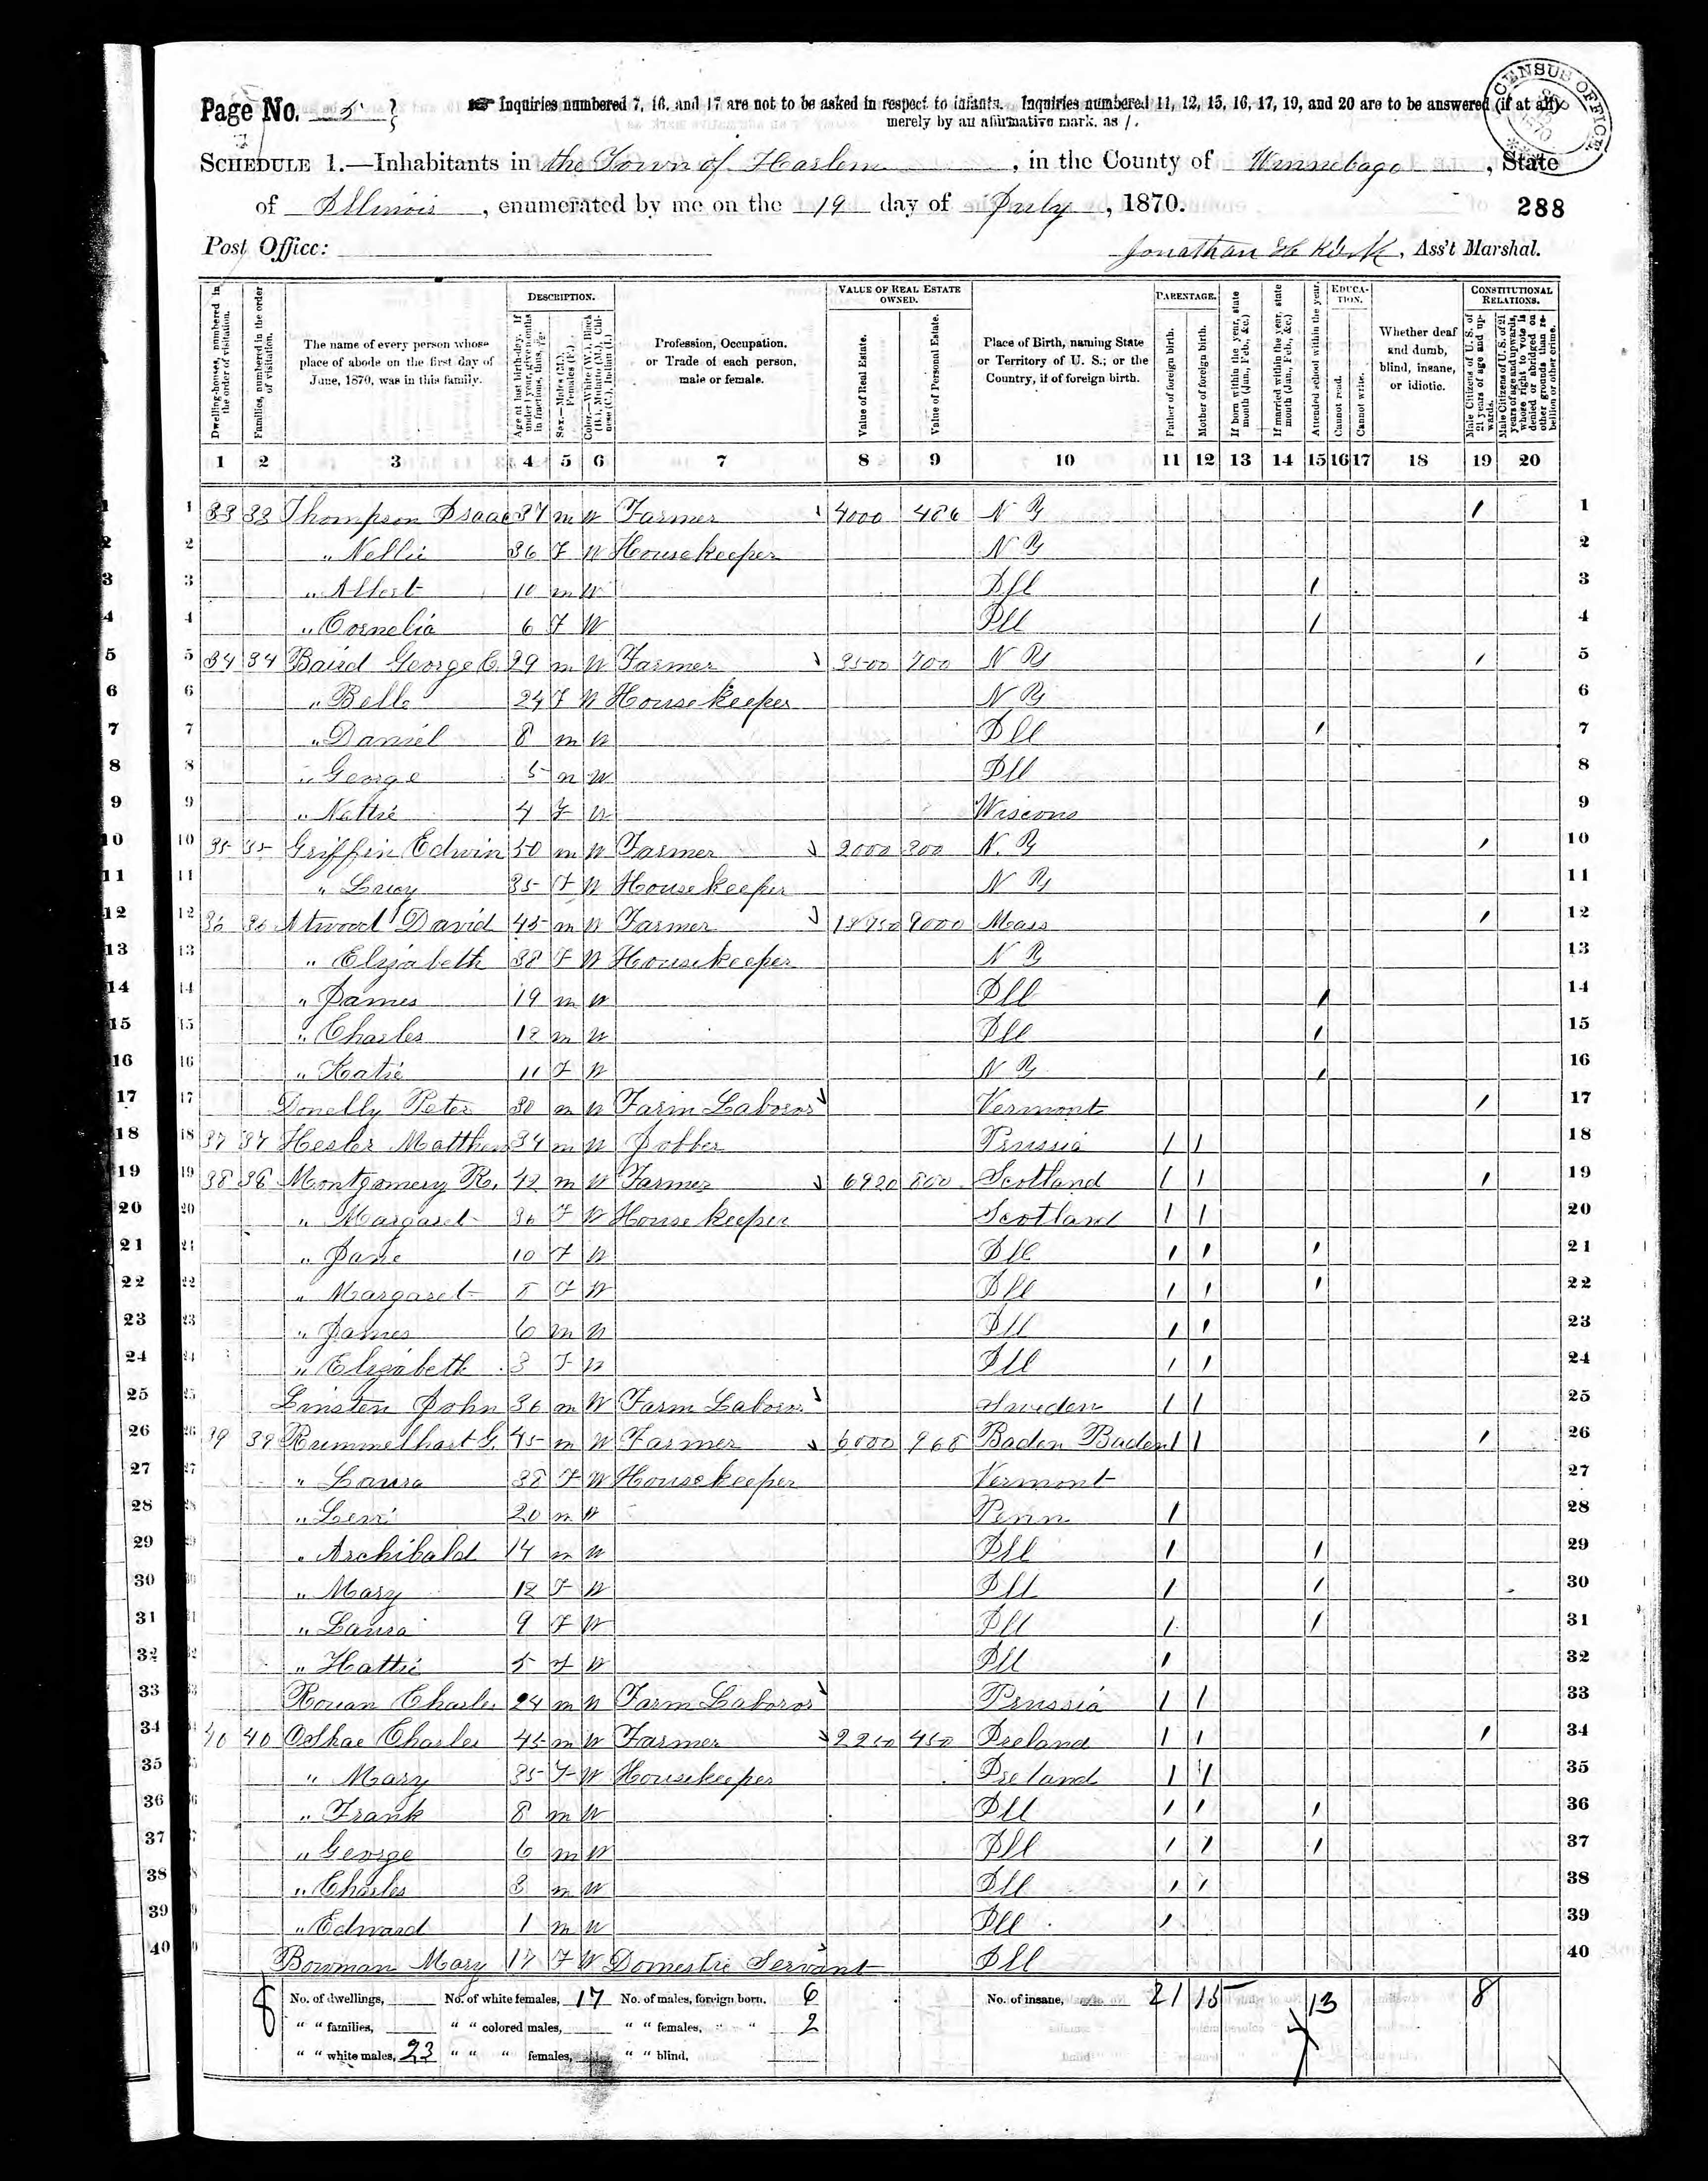 Page No. 5
Inquiries numbered 7, 16, and 17 are not to be asked in respect to infants. Inquiries numbered 11, 12, 15, 16, 17, 19, and 20 are to be answered (if at all)
merely by an affirmative mark, as /.
CENSUS OFFICE 1870
SCHEDULE 1.—Inhabitants in the Town of Harlem, in the County of Winnebago, State
of Illinois, enumerated by me on the 19 day of July, 1870.
288
Post Office:
Jonathan, Ass't Marshal.
Dwelling-houses, numbered in the order of visitation.
Families, numbered in the order of visitation.
The name of every person whose place of abode on the first day of June, 1870, was in this family.
DESCRIPTION.
Age at last birth-day. If under 1 year, give months in fractions, thus,
Sex.—Males (M.), Females (F.).
Color.—White (W.), Black (B.), Mulatto (M.), Chinese (C.), Indian (I.)
Profession, Occupation, or Trade of each person, male or female.
VALUE OF REAL ESTATE OWNED.
Value of Real Estate.
Value of Personal Estate.
Place of Birth, naming State or Territory of U. S.; or the Country, if of foreign birth.
PARENTAGE.
Father of foreign birth.
Mother of foreign birth.
If born within the year, state month (Jan., Feb., &c.)
If married within the year, state month (Jan., Feb., &c.)
Attended school within the year.
EDUCATION.
Cannot read.
Cannot write.
Whether deaf and dumb, blind, insane, or idiotic.
CONSTITUTIONAL RELATIONS.
Male Citizens of U. S. of 21 years of age and upwards.
Male Citizens of U. S. of 21 years of age and upwards, whose right to vote is denied or abridged on other grounds than rebellion or other crime.
1 2 3 4 5 6 7 8 9 10 11 12 13 14 15 16 17 18 19 20
1 33 33 Thompson Isaac 37 m W Farmer 4000 486 N Y / 1
2 " Nellie 36 F W Housekeeper N Y 2
3 " Albert 10 m W Ill / 3
4 " Cornelia 6 F W Ill / 4
5 34 34 Baird George C. 29 m W Farmer 3500 700 N Y / 5
6 " Belle 24 F W Housekeeper N Y 6
7 " Daniel 8 m W Ill / 7
8 " George 5 m W Ill 8
9 " Nettie 4 F W Wiscons 9
10 35 35 Griffin Edwin 50 m W Farmer 2000 300 N. Y / 10
11 " Lucy 35 F W Housekeeper N Y 11
12 36 36 Atwood David 45 m W Farmer 9000 Mass / 12
13 " Elizabeth 38 F W Housekeeper N Y 13
14 " James 19 m W Ill / 14
15 " Charles 12 m W Ill / 15
16 " Katie 11 F W N Y / 16
17 Donelly Peter 30 m W Farm Laborer Vermont / 17
18 37 37 Hesler Matthew 34 m W Jobber Prussia / / 18
19 38 38 Montgomery R. 42 m W Farmer 6920 800 Scotland / / / 19
20 " Margaret 36 F W Housekeeper Scotland / / 20
21 " Jane 10 F W Ill / / / 21
22 " Margaret 8 F W Ill / / / 22
23 " James 6 m W Ill / / 23
24 " Elizabeth 3 F W Ill / / 24
25 Linsten John 36 m W Farm Laborer Sweden / / 25
26 39 39 Rummelhart G. 45 m W Farmer 6000 968 Baden Baden / / / 26
27 " Laura 38 F W Housekeeper Vermont 27
28 " Levi 20 m W Penn / 28
29 " Archibald 14 m W Ill / / 29
30 " Mary 12 F W Ill / / 30
31 " Laura 9 F W Ill / / 31
32 " Hattie 5 F W Ill / 32
33 Rouan Charles 24 m W Farm Laborer Prussia / / 33
34 40 40 OShae Charles 45 m W Farmer 2250 450 Ireland / / / 34
35 " Mary 35 F W Housekeeper Ireland / / 35
36 " Frank 8 m W Ill / / / 36
37 " George 6 m W Ill / / / 37
38 " Charles 3 m W Ill / / 38
39 " Edward 1 m W Ill / 39
40 Bowman Mary 17 F W Domestic Servant Ill 40
8 No. of dwellings, No. of white females, 17 No. of males, foreign born, 6 No. of insane, 21 15 13 8
" " families, " " colored males, " " females, " " 2
" " white males, 23 " " " females, " " blind,